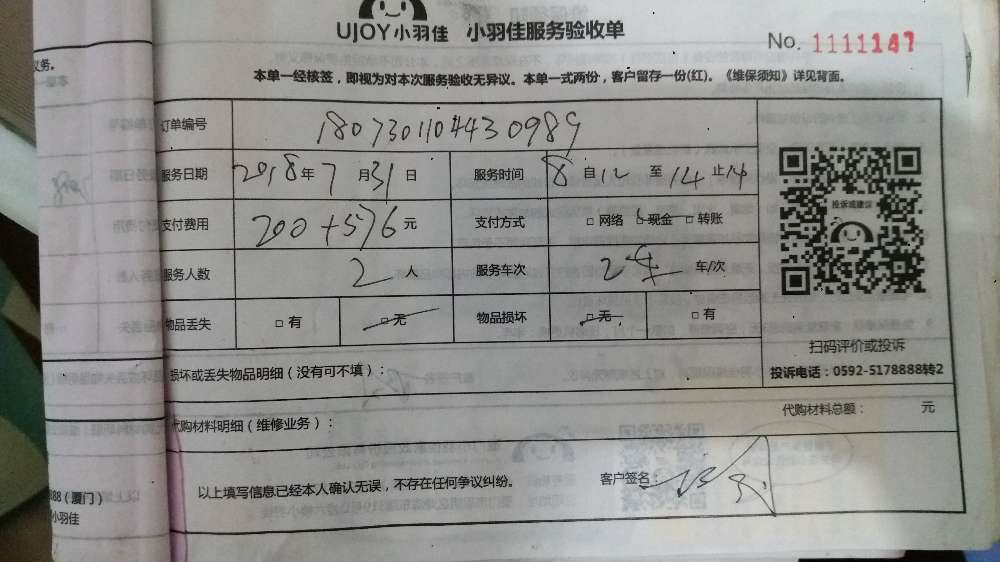 UJOY小羽佳 小羽佳服务验收单
No. 1111147
本单一经核签，即视为对本次服务验收无异议。本单一式两份，客户留存一份(红)。《维保须知》详见背面。
订单编号 1807301104430989
服务日期 2018年7月31日 服务时间 8自12至14止14
支付费用 200+576元 支付方式 □网络 □现金 □转账
投诉或建议
服务人数 2人 服务车次 2车 车/次
物品丢失 □有 □无 物品损坏 □无 □有
扫码评价或投诉
损坏或丢失物品明细（没有可不填）：
投诉电话：0592-5178888转2
代购材料明细（维修业务）：
代购材料总额： 元
以上填写信息已经本人确认无误，不存在任何争议纠纷。
客户签名：
义务。
888（厦门）
小羽佳